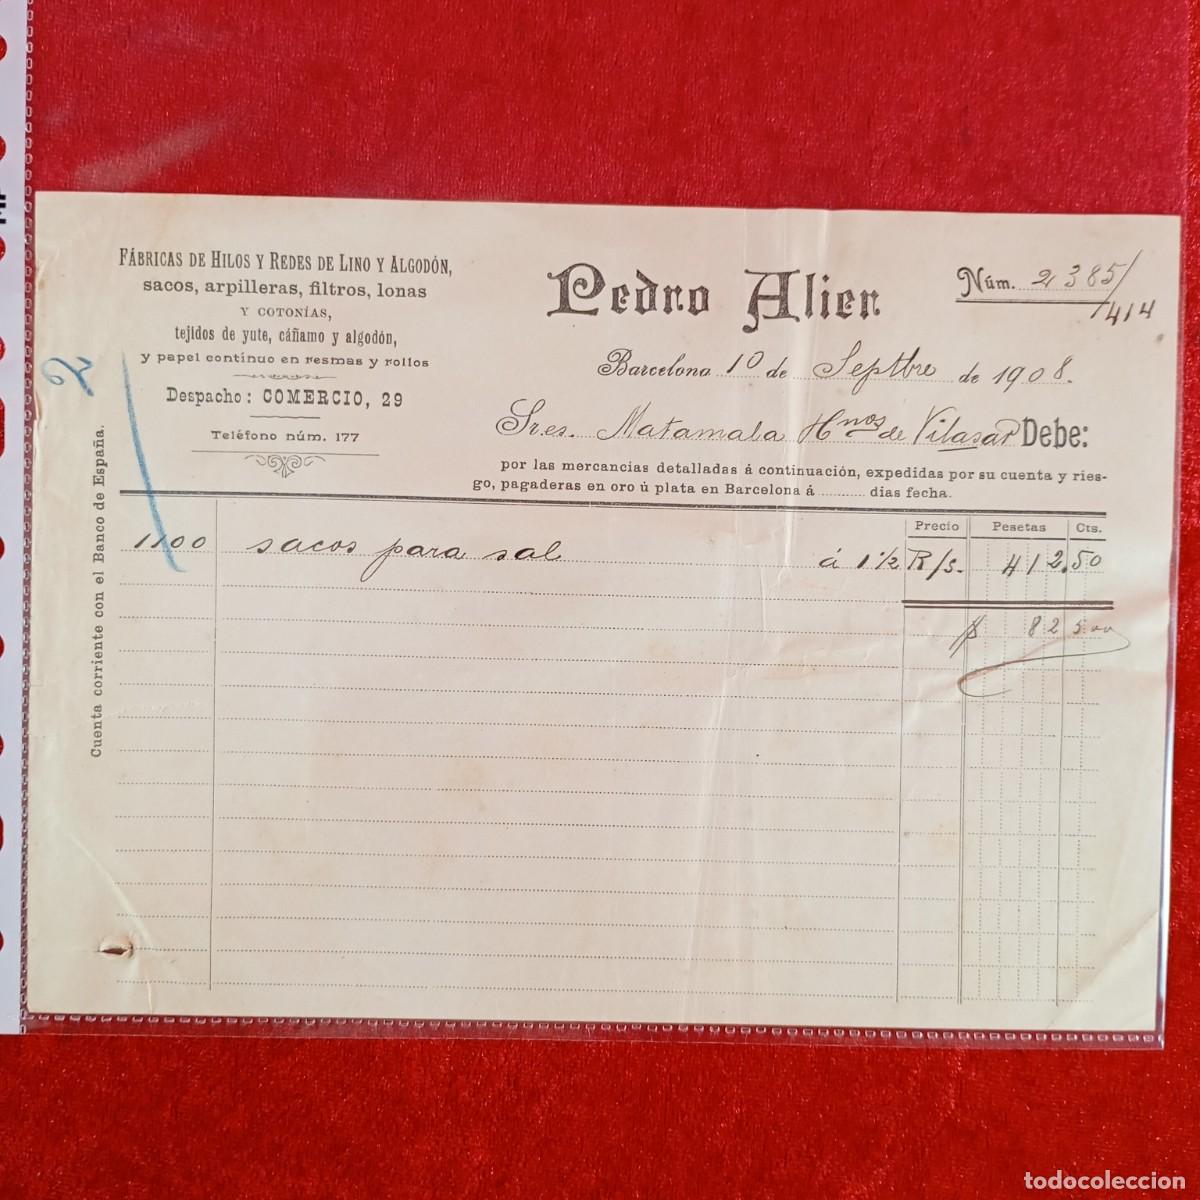 FÁBRICAS DE HILOS Y REDES DE LINO Y ALGODÓN,
sacos, arpilleras, filtros, lonas
Y COTONÍAS,
tejidos de yute, cáñamo y algodón,
y papel contínuo en resmas y rollos
Despacho: COMERCIO, 29
Teléfono núm. 177
Cuenta corriente con el Banco de España.
2
Pedro Alier
Núm. 2385/
/414
Barcelona 10 de Septbre de 1908.
Sres. Matamala Hnos de Vilasar Debe:
por las mercancias detalladas á continuación, expedidas por su cuenta y ries-
go, pagaderas en oro ú plata en Barcelona á .......... dias fecha.
Precio Pesetas Cts.
1100 sacos para sal á 1 1/2 R/s. 412.50
82 500
todocoleccion